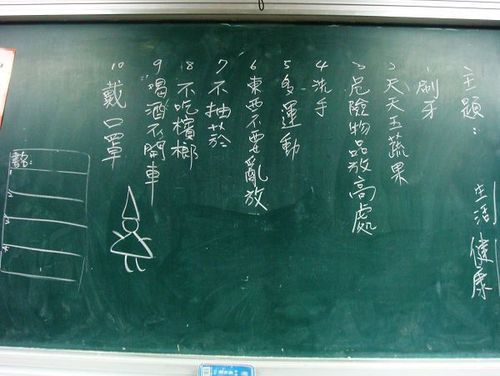 主題: 生活健康
1 刷牙
2 天天五蔬果
3 危險物品放高處
4 洗手
5 多運動
6 東西不要亂放
7 不抽菸
8 不吃檳榔
9 喝酒不開車
10 戴口罩
1
2
3
4